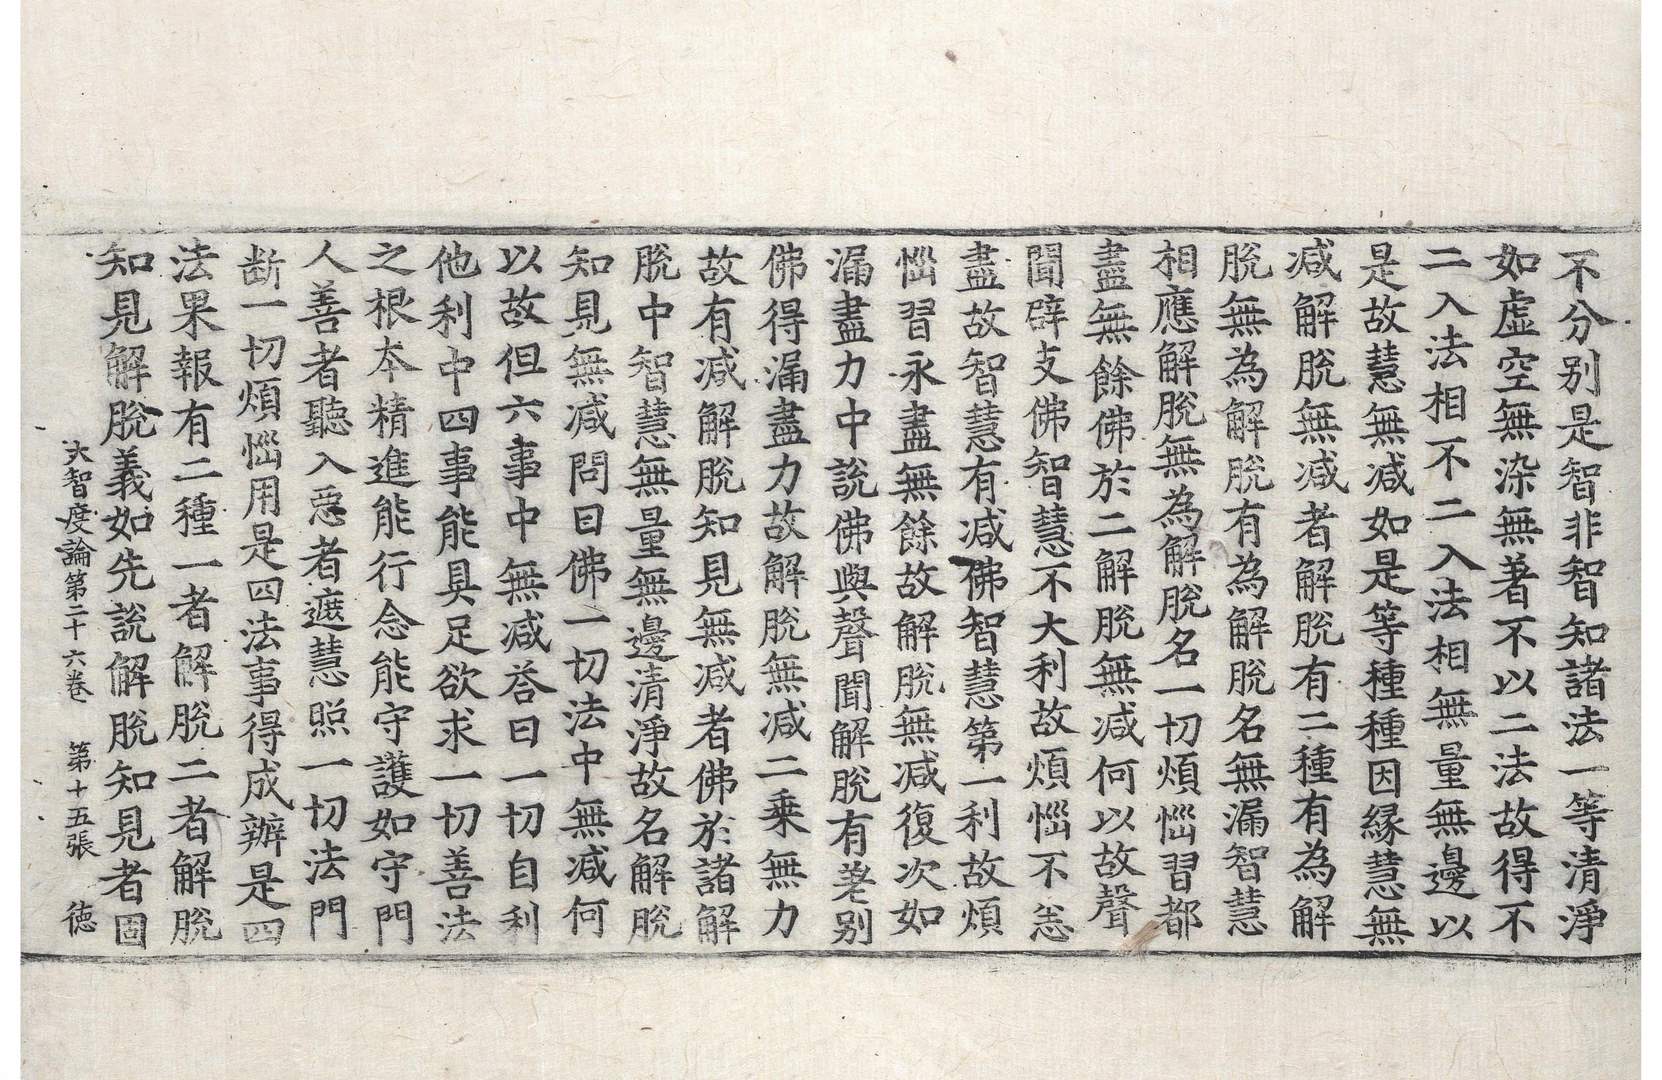 不分别是智非智知諸法一等清淨
如虛空無染無著不以二法故得不
二入法相不二入法相無量無邊以
是故慧無减如是等種種因緣慧無
减解脫無减者解脫有二種有為解
脫無為解脫有為解脫名無漏智慧
相應解脫無為解脫名一切煩惱習都
盡無餘佛於二解脫無减何以故聲
聞辟支佛智慧不大利故煩惱不盡
盡故智慧有减佛智慧第一利故煩
惱習永盡無餘故解脫無减復次如
漏盡力中說佛與聲聞解脫有差别
佛得漏盡力故解脫無减二乘無力
故有减解脫知見無减者佛於諸解
脫中智慧無量無邊清淨故名解脫
知見無减問曰佛一切法中無减何
以故但六事中無减荅曰一切自利
他利中四事能具足欲求一切善法
之根本精進能行念能守護如守門
人善者聽入惡者遮慧照一切法門
断一切煩惱用是四法事得成辦是四
法果報有二種一者解脫二者解脫
知見解脫義如先說解脫知見者固
大智度論第二十六卷 第十五張 德